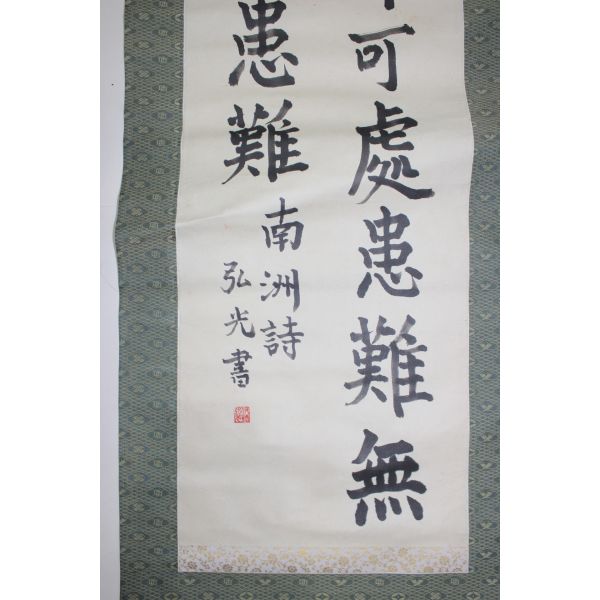 可處患難無
患難
南洲詩
弘光書